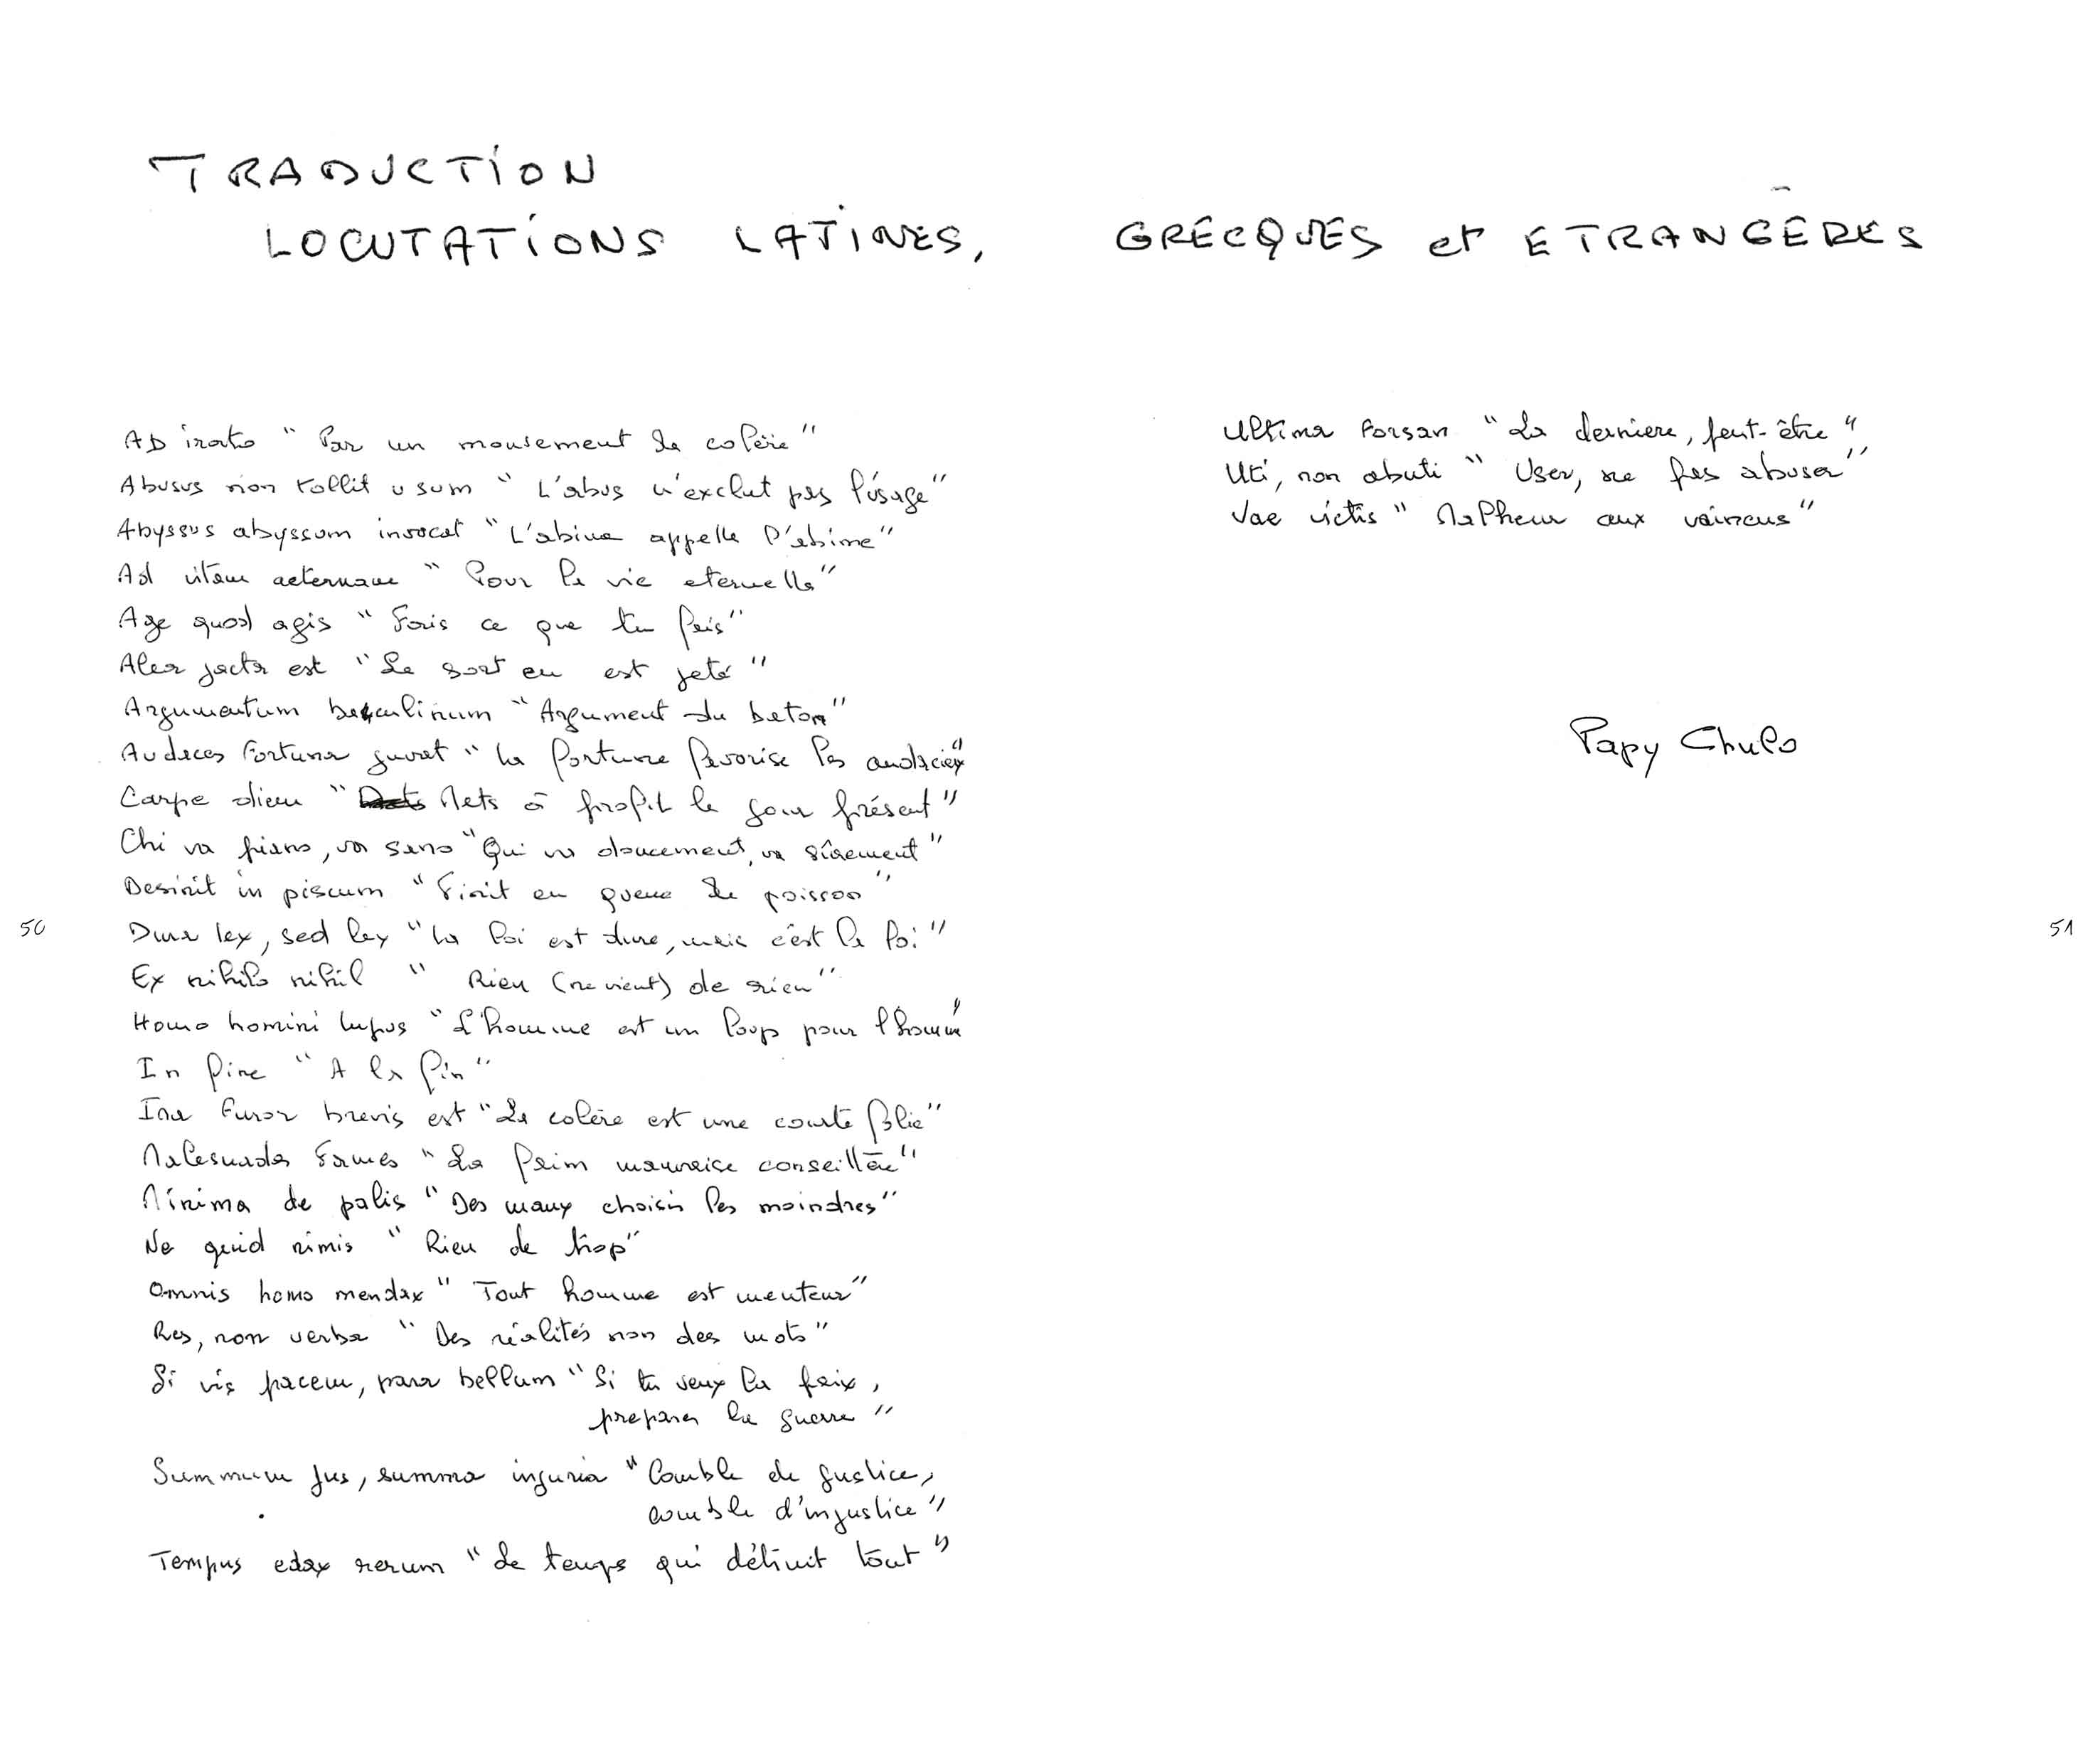 TRADUCTION
LOCUTATIONS LATINES, GRECQUES et ETRANGÈRES
AD irato " Par un mousement de colère "
Abusus non tollit usum " L'abus n'exclut pas l'usage "
Abyssus abyssum invocat " L'abime appelle l'abime "
Ad vitam aeternam " Pour la vie eternelle "
Age quod agis " Fais ce que tu fais "
Alea jacta est " Le sort en est jeté "
Argumentum baculinum " Argument du baton "
Audaces Fortuna juvat " la fortune favorise les audacieux "
Carpe diem " Mets à profit le jour présent "
Chi va piano, va sano " Qui va doucement, va sûrement "
Desinit in piscum " Finit en queue de poisson "
Dura lex, sed lex " la loi est dure, mais c'est la loi "
Ex nihilo nihil " Rien (ne vient) de rien "
Homo homini lupus " L'homme est un loup pour l'homme "
In fine " A la fin "
Ira Furor brevis est " La colère est une courte folie "
Malesuada Fames " La faim mauvaise conseillère "
Minima de palis " Des maux choisir les moindres "
Ne quid nimis " Rien de trop "
Omnis homo mendax " Tout homme est menteur "
Res, non verba " Des réalités non des mots "
Si vis pacem, para bellum " Si tu veux la paix,
prepares la guerre "
Summum jus, summa injuria " Comble de justice,
comble d'injustice "
Tempus edax rerum " Le temps qui détruit tout "
50
Ultima Forsan " La derniere, peut-être "
Uti, non abuti " User, ne pas abuser "
Vae victis " Malheur aux vaincus "
Papy Chulo
51